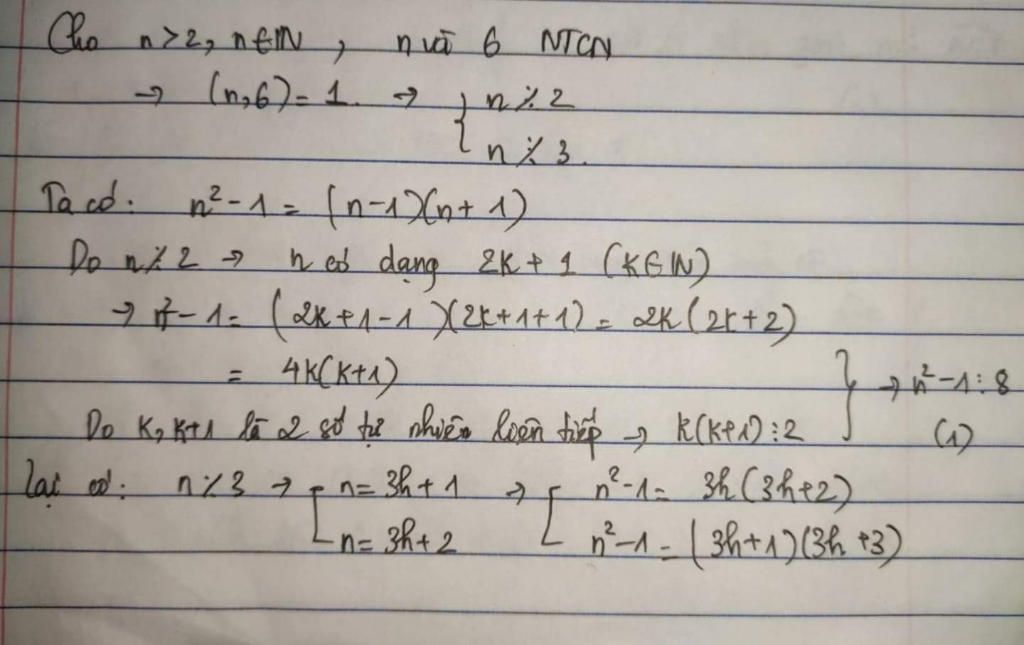 Cho n>2, n∈IN, n và 6 NTCN
→ (n,6)=1. → { n ⋮̸ 2
n ⋮̸ 3.
Ta có: n² - 1 = (n-1)(n+1)
Do n ⋮̸ 2 → n có dạng 2k+1 (k∈IN)
→ n² - 1 = (2k+1-1)(2k+1+1) = 2k(2k+2)
= 4k(k+1) } → n² - 1 ⋮ 8
Do k, k+1 là 2 số tự nhiên liên tiếp → k(k+1) ⋮ 2 (1)
Lại có: n ⋮̸ 3 → [ n = 3h+1 → [ n² - 1 = 3h(3h+2)
n = 3h+2 n² - 1 = (3h+1)(3h+3)